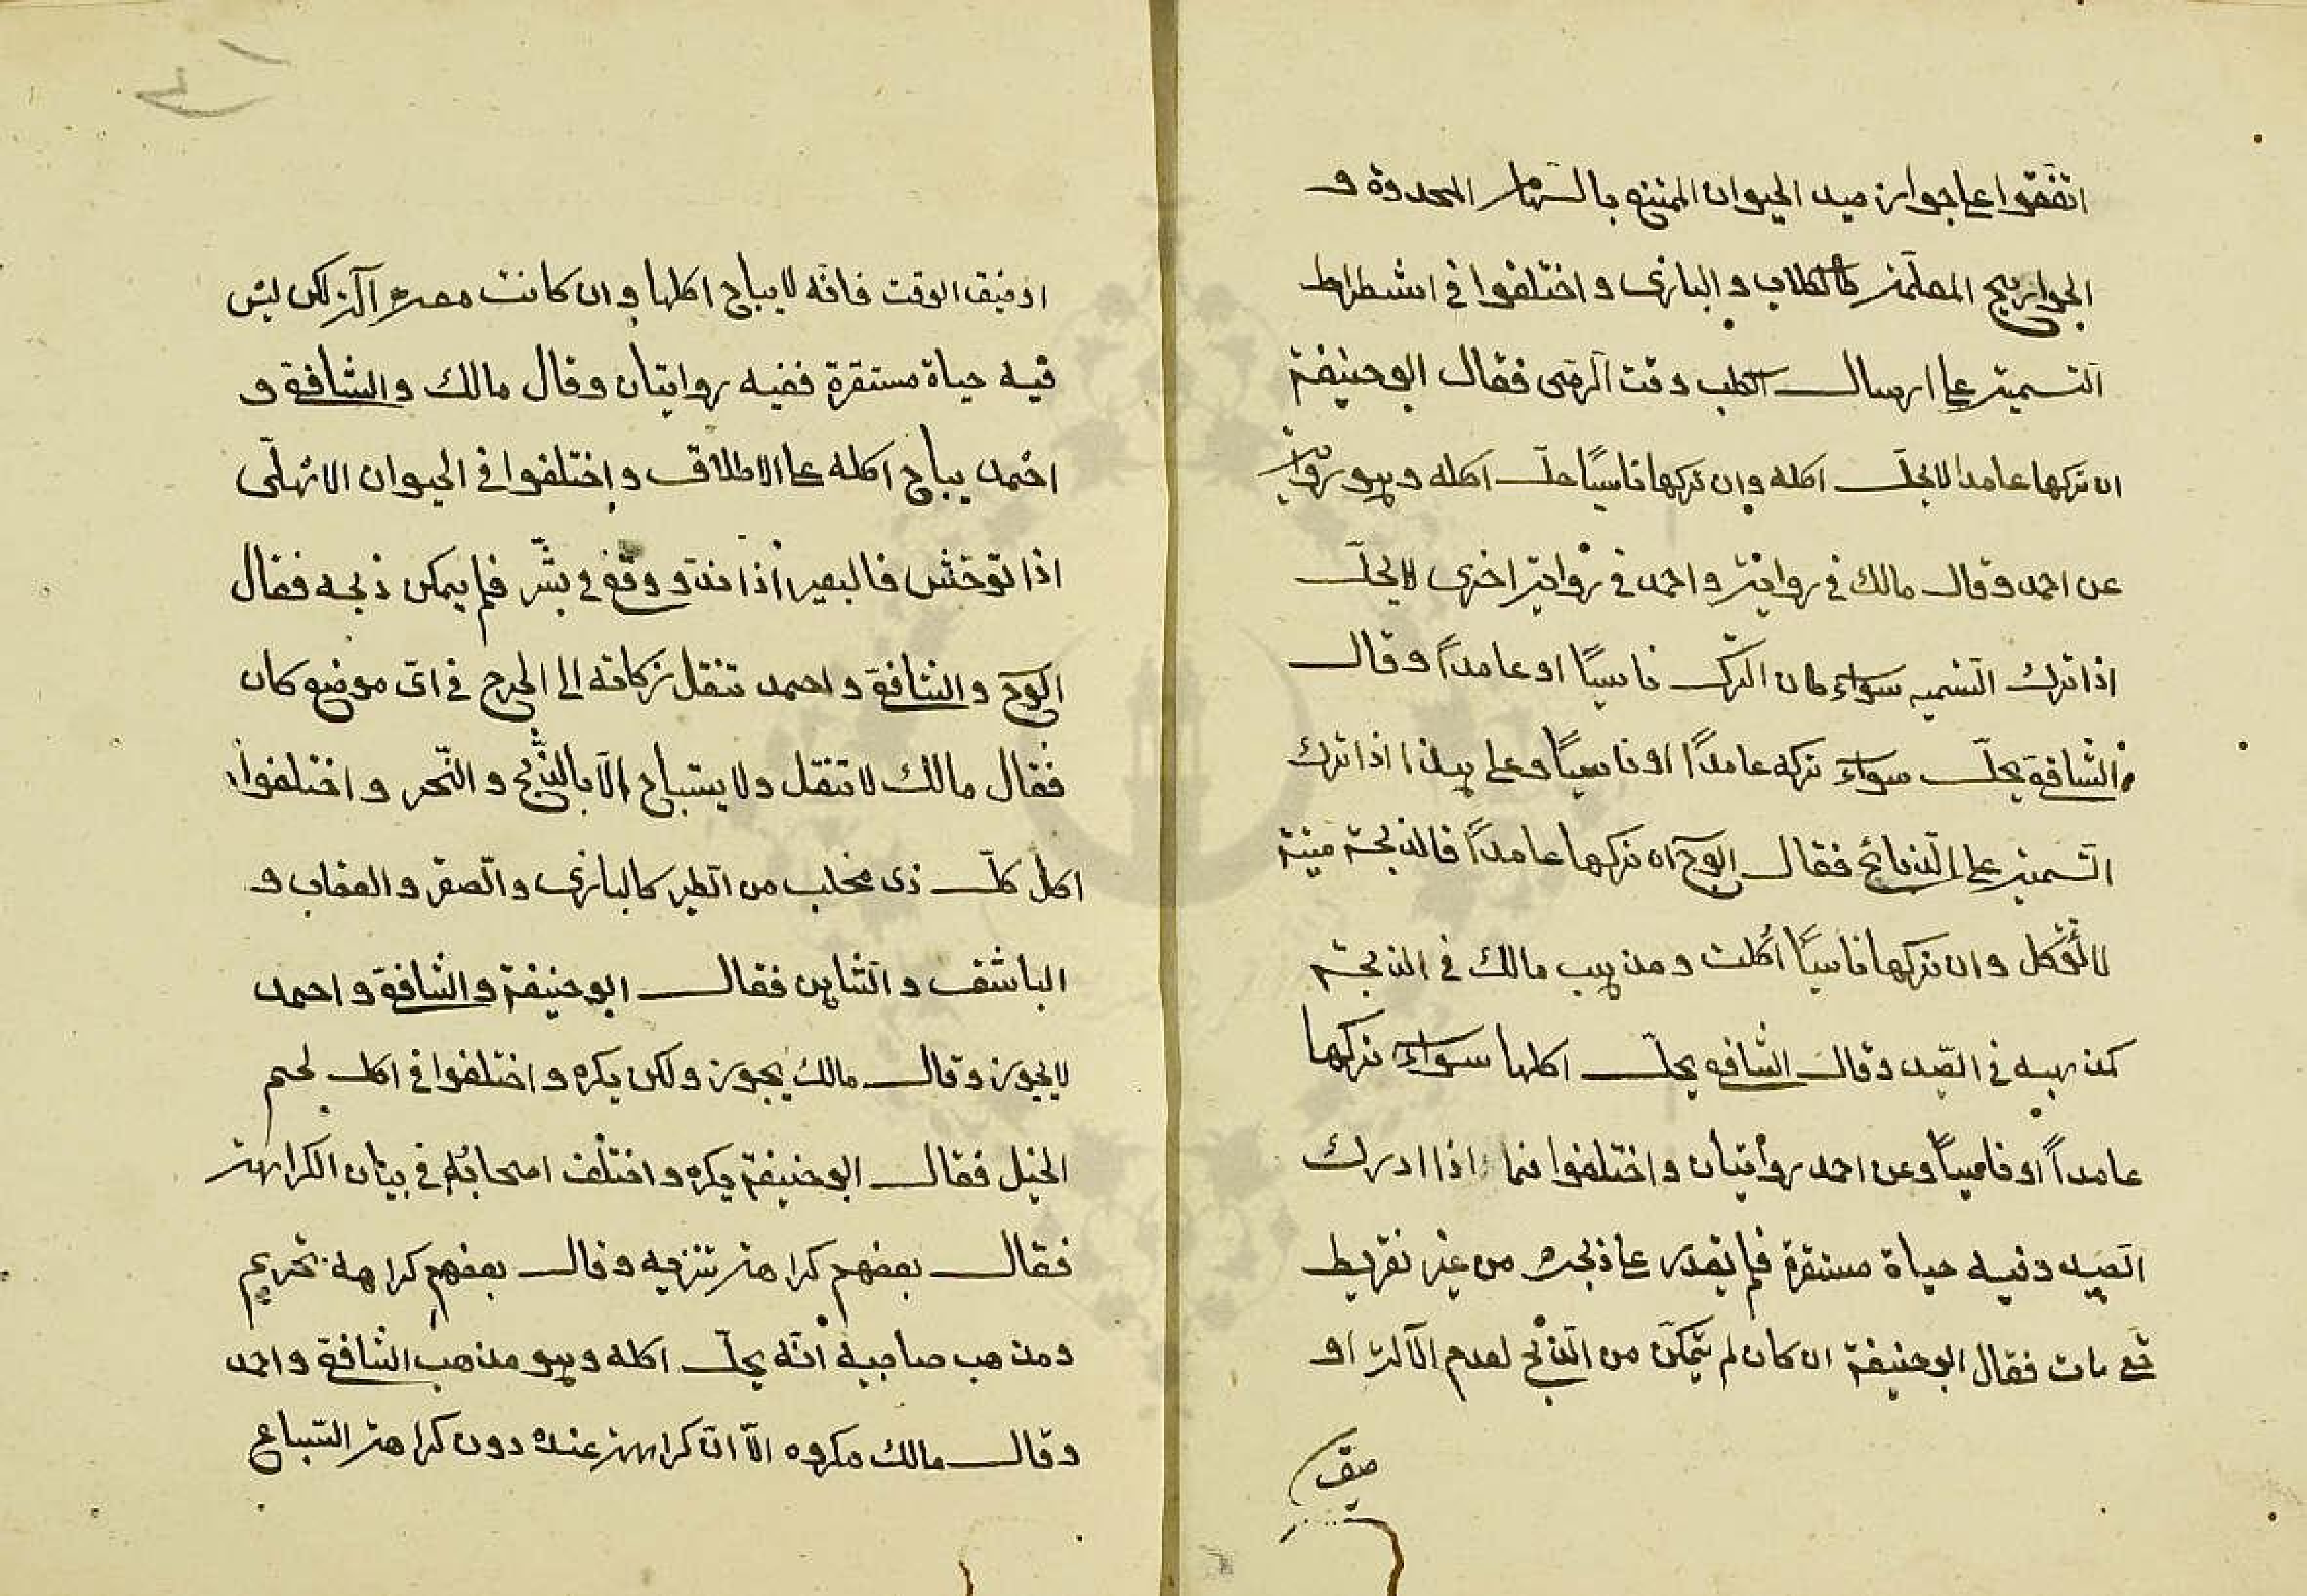 اتفقوا على جواز صيد الحيوان الممتنع بالسهام المحدودة و
الجوارح المعلمة كالكلاب والبازى واختلفوا فى اشتراط
التسمية على ارسال الكلب وقت الرمى فقال ابو حنيفة
ان تركها عامدا لا يحل اكله وان تركها ناسيًا حل اكله وهو رواية
عن احمد وقال مالك فى رواية واحمد فى رواية اخرى لا يحل
اذا ترك التسميه سواء كان الترك ناسيًا او عامداً وقال
الشافعى يحل سواء تركه عامداً او ناسيًا وعلى هذا اذا ترك
التسمية على الذبائح فقال ابوح ان تركها عامداً فالذبيحة ميتة
لا تُؤكل وان تركها ناسيًا اُكلت ومذهب مالك فى الذبيحة
كمذهبه فى الصيد وقال الشافعى يحل اكلها سواء تركها
عامداً او ناسياً وعن احمد روايتان واختلفوا فيما اذا ادرك
الصيد وفيه حياة مستقرة فلم يقدر على ذبحه من غير تفريط
حتى مات فقال ابو حنيفة ان كان لم يتمكن من الذبح لعدم الآلة او
ضيق
او ضيق الوقت فانه لا يباح اكلها وان كانت معه آلة لكن ليس
فيه حياة مستقرة ففيه روايتان وقال مالك والشافعى و
احمد يباح اكله على الاطلاق واختلفوا فى الحيوان الاهلى
اذا توحش فالبعير اذا ند و وقع فى بئر فلم يمكن ذبحه فقال
ابوح والشافعى واحمد تنقل زكاته الى الجرح فى اى موضع كان
فقال مالك لا تنقل ولا يستباح الا بالذبح والنحر واختلفوا
اكل كل ذى مخلب من الطير كالبازى والصقر والعقاب و
الباشق والشاهين فقال ابو حنيفة والشافعى واحمد
لا يجوز وقال مالك يجوز ولكن يكره واختلفوا فى اكل لحم
الخيل فقال ابو حنيفة يكره واختلف اصحابه فى بيان الكراهة
فقال بعضهم كراهة تنزيه وقال بعضهم كراهة تحريم
ومذهب صاحبيه انه يحل اكله وهو مذهب الشافعى واحمد
وقال مالك مكروه الا ان كراهته عنده دون كراهة السباع